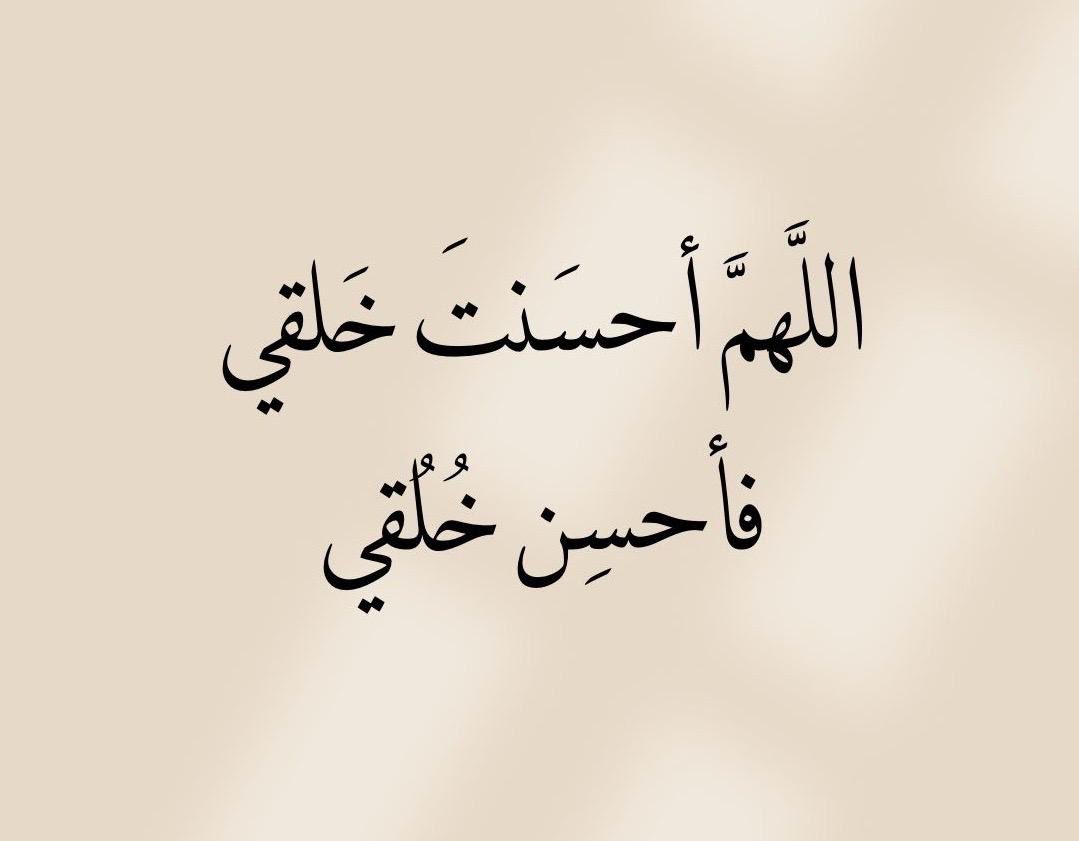 اللَّهمَّ أحسَنتَ خَلقي
فأحسِن خُلُقي